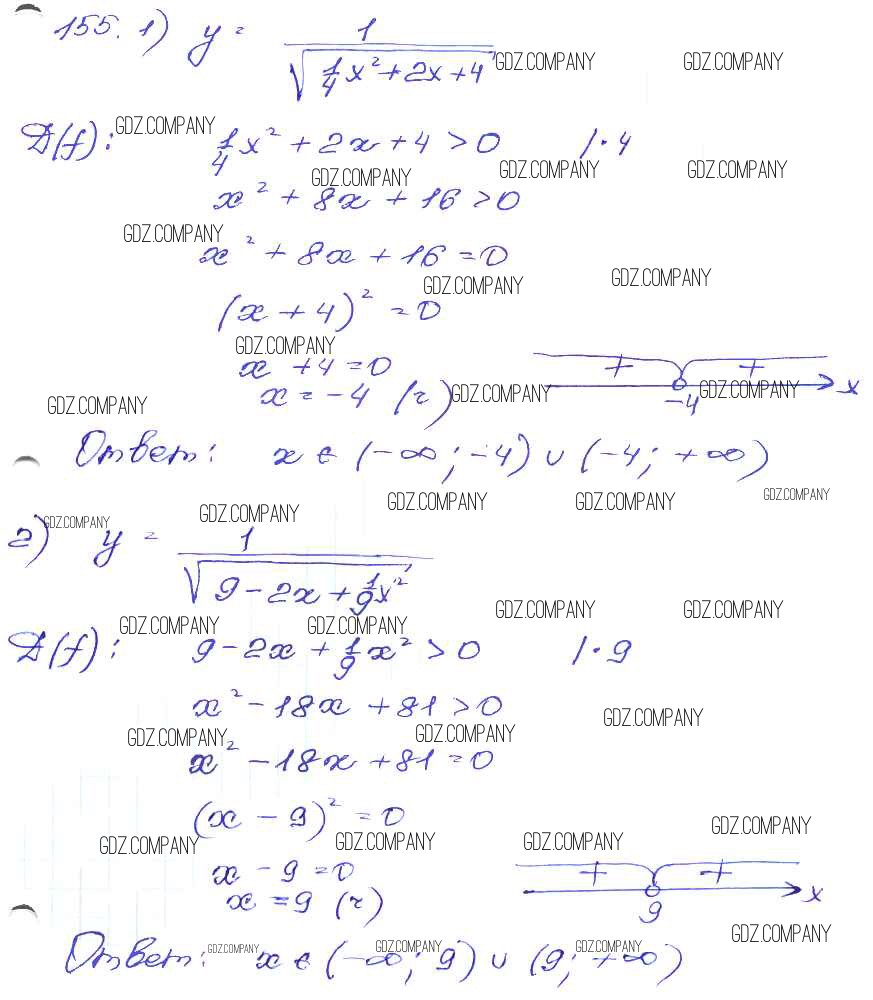 155. 1) y = 1/√(1/4 x² + 2x + 4) GDZ.COMPANY GDZ.COMPANY
D(f): GDZ.COMPANY 1/4 x² + 2x + 4 > 0 | · 4
GDZ.COMPANY GDZ.COMPANY GDZ.COMPANY
x² + 8x + 16 > 0
GDZ.COMPANY
x² + 8x + 16 = 0
GDZ.COMPANY GDZ.COMPANY
(x + 4)² = 0
GDZ.COMPANY
x + 4 = 0 + +
x = -4 (r) GDZ.COMPANY -4 GDZ.COMPANY x
GDZ.COMPANY
Ответ: x ∈ (-∞; -4) ∪ (-4; +∞)
GDZ.COMPANY GDZ.COMPANY GDZ.COMPANY GDZ.COMPANY
2) GDZ.COMPANY y = 1/√(9 - 2x + 1/9 x²)
GDZ.COMPANY GDZ.COMPANY GDZ.COMPANY GDZ.COMPANY
D(f): 9 - 2x + 1/9 x² > 0 | · 9
x² - 18x + 81 > 0 GDZ.COMPANY
GDZ.COMPANY GDZ.COMPANY
x² - 18x + 81 = 0
(x - 9)² = 0 GDZ.COMPANY
GDZ.COMPANY GDZ.COMPANY GDZ.COMPANY
x - 9 = 0 + +
x = 9 (r) 9 x
GDZ.COMPANY
Ответ: GDZ.COMPANY x ∈ (-∞; 9) ∪ (9; +∞) GDZ.COMPANY GDZ.COMPANY